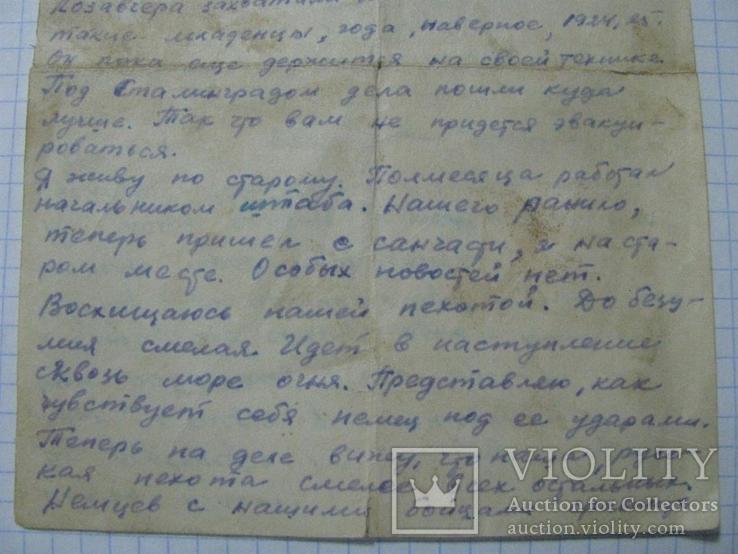 Позавчера захватили
такие младенцы, года, наверное, 1924, 25.
Он пока еще держится на своей технике.
Под Сталинградом дела пошли куда
лучше. Так что вам не придется эвакуи-
роваться.
Я живу по старому. Полмесяца работал
начальником штаба. Нашего ранило,
теперь пришел с санчасти, я на ста-
ром месте. Особых новостей нет.
Восхищаюсь нашей пехотой. До безу-
мия смелая. Идет в наступление
сквозь море огня. Представляю, как
чувствует себя немец под ее ударами.
Теперь на деле вижу, что наша
кая пехота смелее всех остальных.
Немцев с нашими бойцами
VIOLITY
Auction for Collectors
auction.violity.com